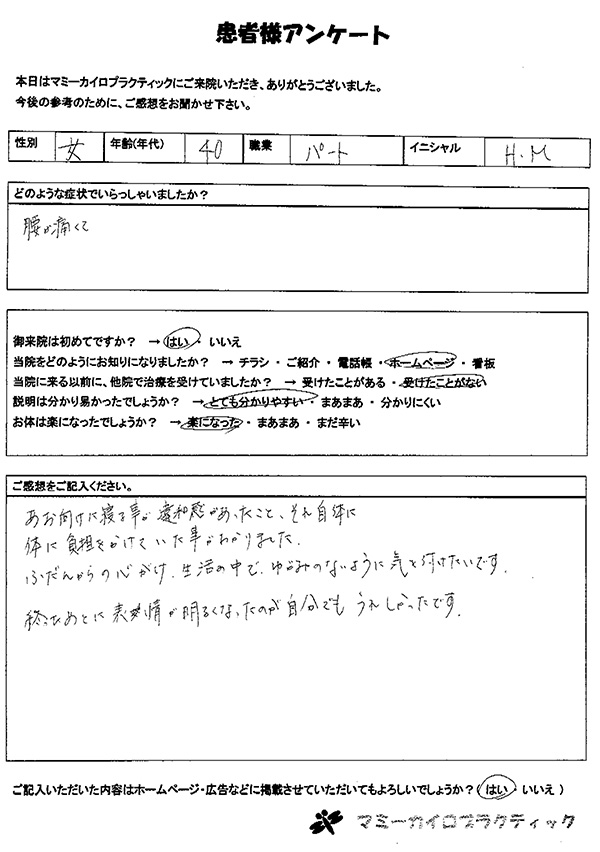 患者様アンケート
本日はマミーカイロプラクティックにご来院いただき、ありがとうございました。
今後の参考のために、ご感想をお聞かせ下さい。
性別 女 年齢(年代) 40 職業 パート イニシャル H.M
どのような症状でいらっしゃいましたか？
腰が痛くて
御来院は初めてですか？ →はい・いいえ
当院をどのようにお知りになりましたか？ →チラシ・ご紹介・電話帳・ホームページ・看板
当院に来る以前に、他院で治療を受けていましたか？ →受けたことがある・受けたことがない
説明は分かり易かったでしょうか？ →とても分かりやすい・まあまあ・分かりにくい
お体は楽になったでしょうか？ →楽になった・まあまあ・まだ辛い
ご感想をご記入ください。
あお向けに寝る事が違和感があったこと、それ自体に
体に負担をかけていた事がわかりました.
ふだんからの心がけ、生活の中で、ゆるみのないように気を付けたいです.
終ったあとに表情が明るくなったのが自分でもうれしかったです.
ご記入いただいた内容はホームページ・広告などに掲載させていただいてもよろしいでしょうか？（はい・いいえ）
マミーカイロプラクティック